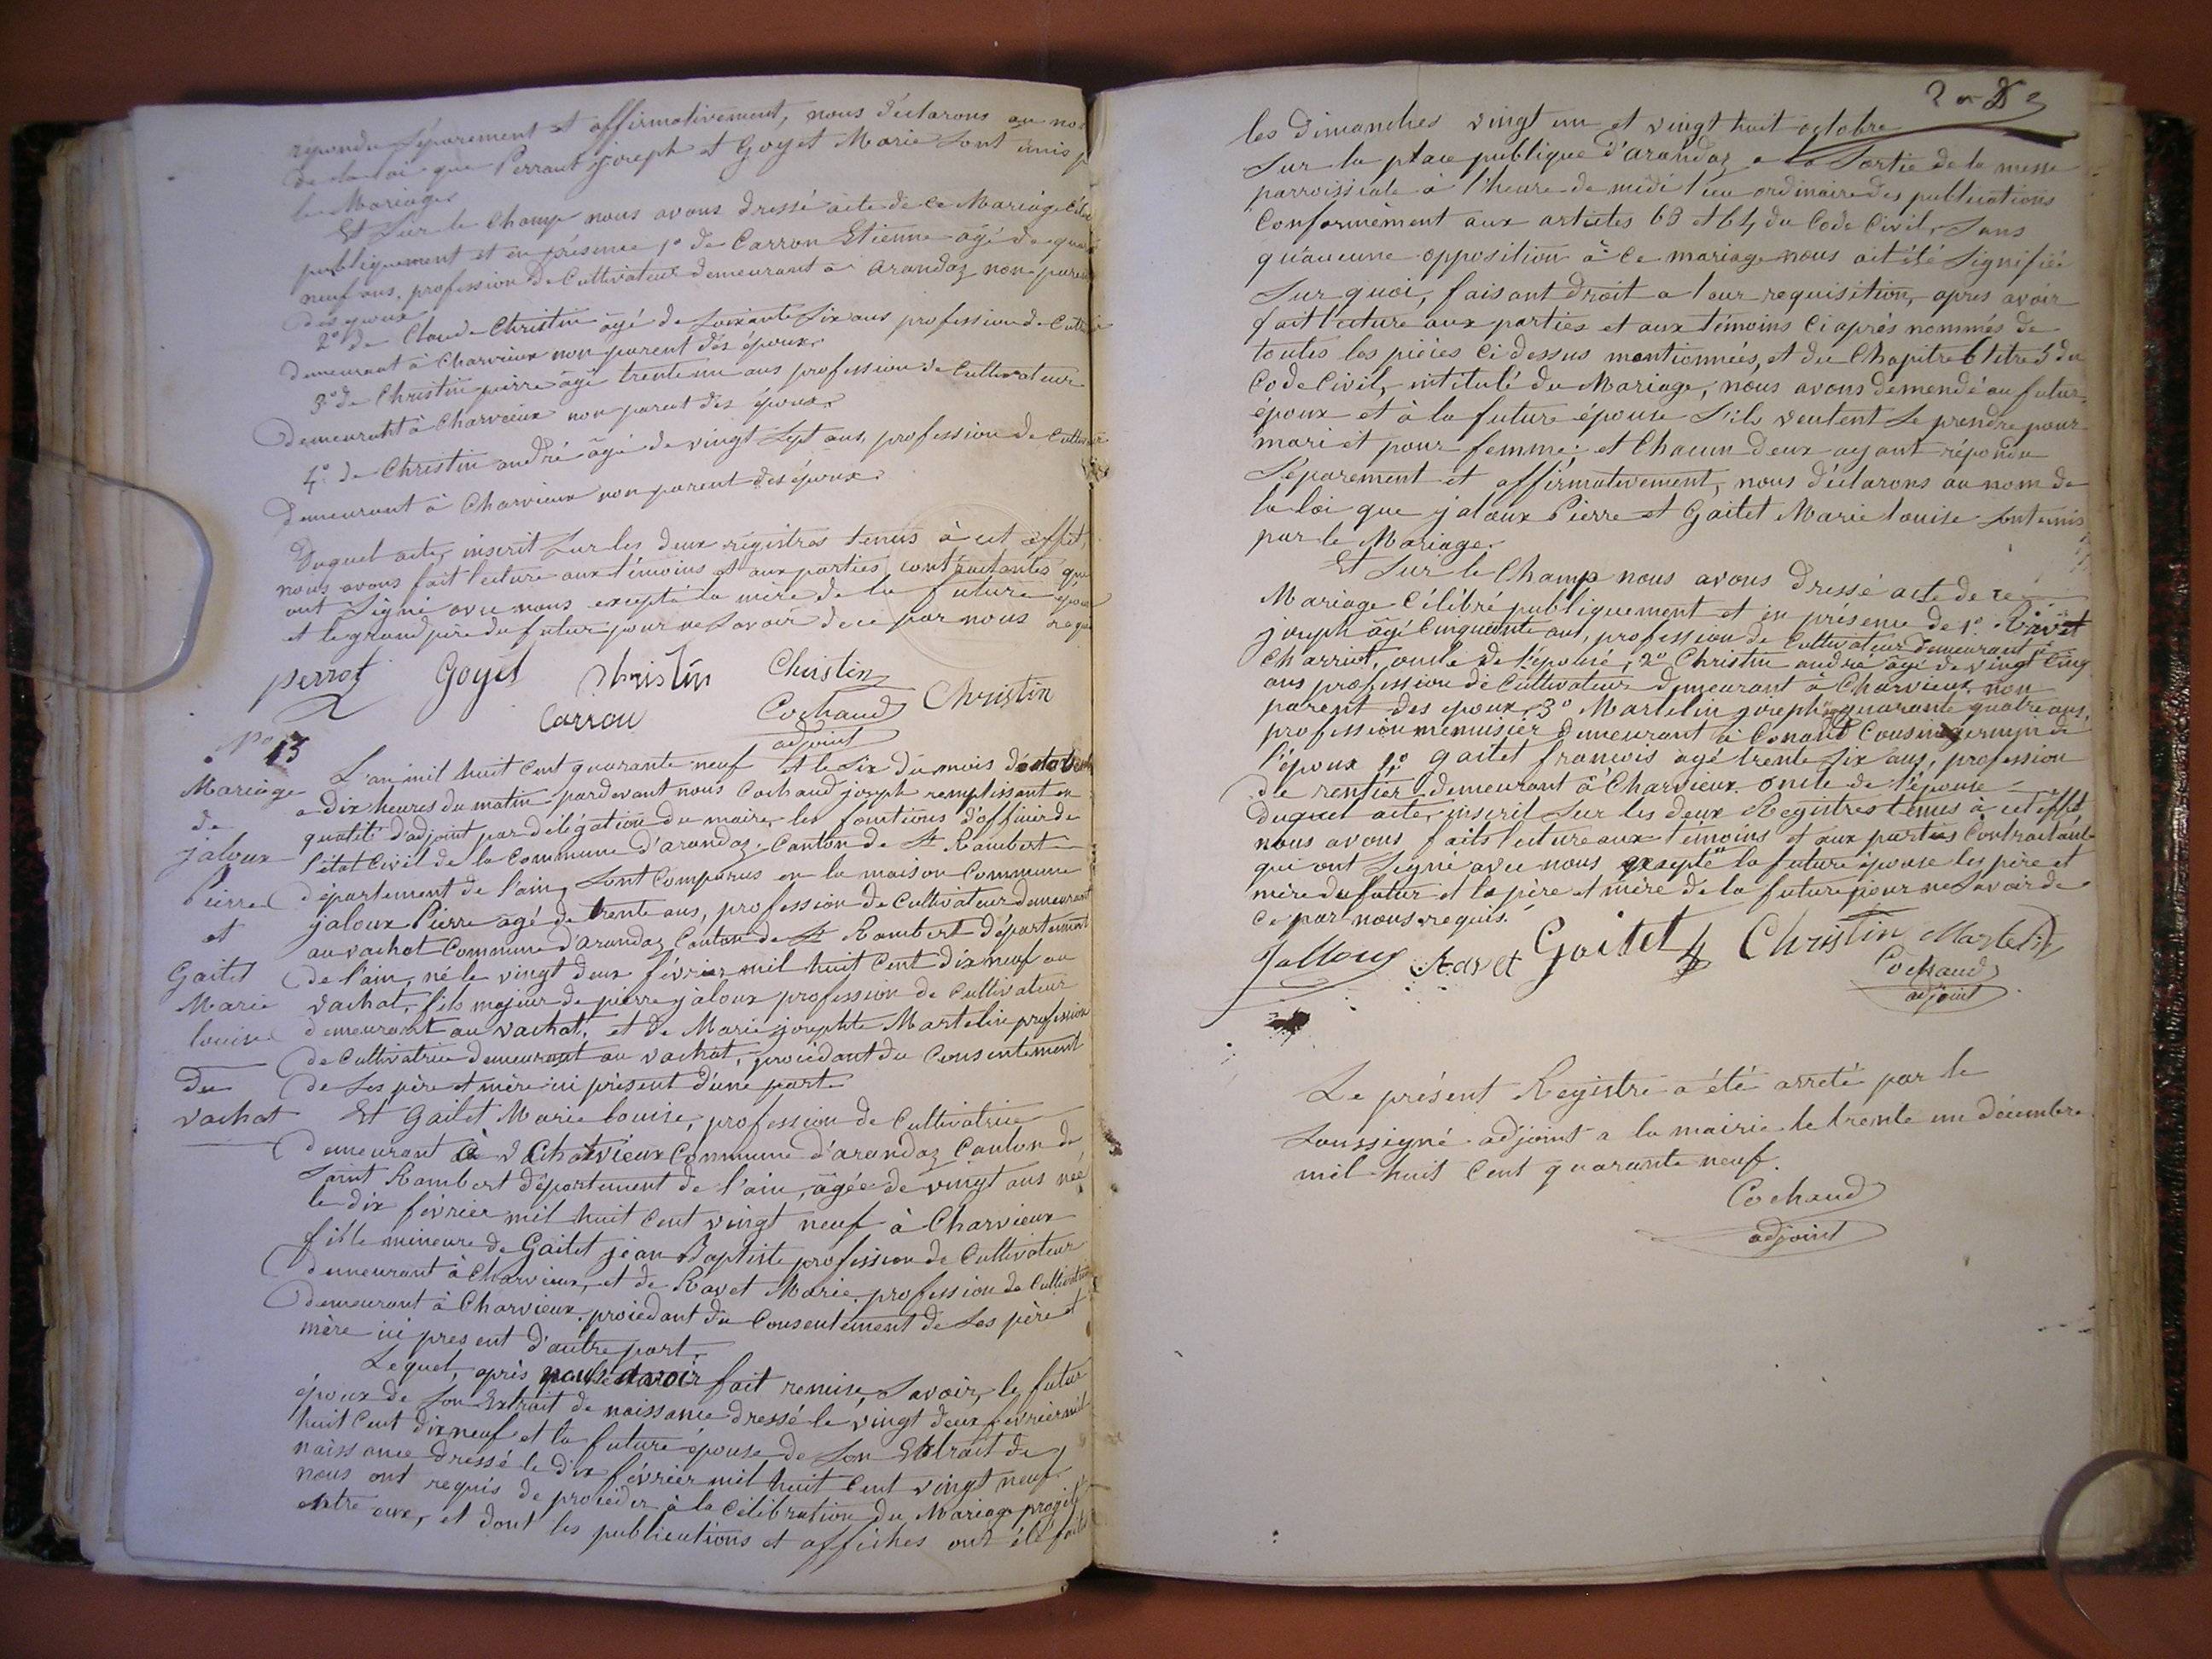 répondu séparement et affirmativement, nous déclarons au no
de la loi que Perraut joseph et Goyet Marie sont unis p
le Mariage
Et sur le champ nous avons dressé acte de ce Mariage célé
publiquement et en présence 1º de Carron Etienne âgé de quar
neuf ans, profession de Cultivateur demeurant à arandaz non paren
des époux
2º de Claude Christin âgé de soixante six ans profession de Culti
demeurant à Charvieux non parent des époux.
3º de Christin pierre âgé trente un ans profession de Cultivateur
demeurant à Charvieux non parent des époux.
4º de Christin andré âgé de vingt sept ans, profession de Cultivateur
demeurant à Charvieux non parent des époux.
Duquel acte, inscrit sur les deux régistres tenus à cet effet,
nous avons fait lecture aux témoins et aux parties contractantes qui
ont signé avec nous excepté la mère de la future épouse
et le grand père du futur pour ne savoir de ce par nous requis
perrot Goyet Christin Christin
Carrou Cochaud Christin
adjoint
Nº 13
Mariage
de
jaloux
Pierre
et
Gaitet
Marie
louise
du
vachat
L'an mil huit cent quarante neuf et le six du mois
a dix heures du matin pardevant nous Cochaud joseph remplissant en
qualité d'adjoint par délégation du maire, les fonctions d'officier de
l'état civil de la Commune d'arandaz, Canton de St Rambert
département de l'ain, sont comparus en la maison Commune
jaloux Pierre âgé de trente ans, profession de Cultivateur demeurant
au vachat Commune d'arandaz Canton de St Rambert département
de l'ain, né le vingt deux février mil huit cent dix neuf au
vachat, fils majeur de pierre jaloux profession de Cultivateur
demeurant au vachat, et de Marie josephte Martelin profession
de Cultivatrice demeurant au vachat, procédant du Consentement
de ses père et mère ici présent d'une part
Et Gaitet Marie louise, profession de Cultivatrice
demeurant à Charvieux Commune d'arandaz Canton de
Saint Rambert département de l'ain, âgée de vingt ans née
le dix février mil huit cent vingt neuf à Charvieux
fille mineure de Gaitet jean Baptiste profession de Cultivateur
demeurant à Charvieux, et de Ravet Marie, profession de Cultivatrice
demeurant à Charvieux procédant du Consentement de ses père et
mère ici présent d'autre part.
Lequel, après avoir fait remise, savoir, le futur
époux de son Extrait de naissance dressé le vingt deux février mil
huit cent dix neuf et la future épouse de son Extrait de
naissance dressé le dix février mil huit cent vingt neuf
nous ont requis de procéder à la célébration du Mariage projeté
entre eux, et dont les publications et affiches ont été faites
les dimanches vingt un et vingt huit octobre
sur la place publique d'arandaz a la sortie de la messe
parroissiale à l'heure de midi lieu ordinaire des publications
conformément aux articles 63 et 64 du Code Civil, sans
qu'aucune opposition à ce mariage nous ait été signifiée
sur quoi, faisant droit a leur requisition, apres avoir
fait lecture aux parties et aux témoins ci après nommés de
toutes les pièces ci dessus mentionnées, et du Chapitre 6 titre 5 du
Code Civil, intitulé du Mariage; nous avons demendé au futur
époux et à la future épouse s'ils veulent se prendre pour
mari et pour femme: et chacun deux ayant répondu
séparement et affirmativement, nous déclarons au nom de
la loi que jaloux Pierre et Gaitet Marie louise sont unis
par le Mariage.
Et sur le Champ nous avons dressé acte de ce
Mariage célébré publiquement et en présence de 1º Ravet
joseph âgé Cinquante ans, profession de Cultivateur demeurant à
Charriot, oncle de l'épouse, 2º Christin andré âgé de vingt Cinq
ans profession de Cultivateur demeurant à Charvieux non
parent des epoux 3º Martelin joseph quarante quatre ans,
profession menuisier demeurant à Conand Cousin germain de
l'époux gaitet francois agé trente six ans, profession
de rentier demeurant à Charvieux oncle de l'épouse
duquel acte, inscrit sur les deux Registres tenus à cet effet
nous avons faits lecture aux témoins et aux parties Contractant
qui ont signé avec nous excepté la future épouse les père et
mère du futur et la père et mère de la future pour ne savoir de
ce par nous requis.
Jalloux Ravet Gaitet Christin Martelin
Cochaud
adjoint
Le présent Registre a été arreté par le
soussigné adjoint a la mairie le trente un décembre
mil huit cent quarante neuf.
Cochaud
adjoint